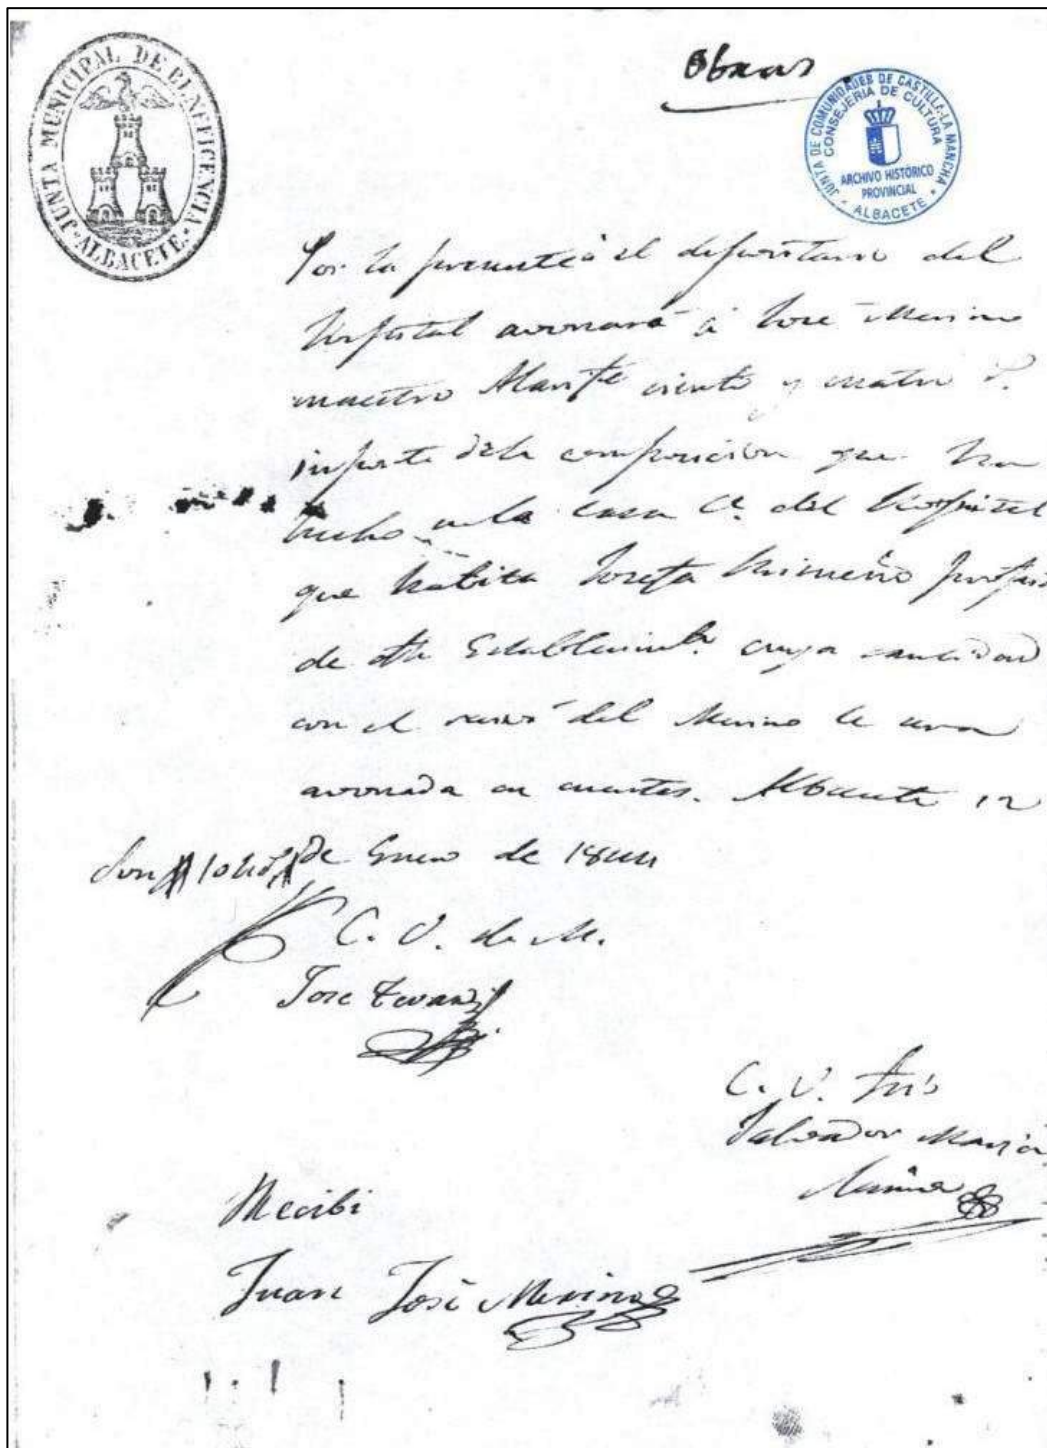 JUNTA MUNICIPAL DE BENEFICENCIA
ALBACETE.
Obras
JUNTA DE COMUNIDADES DE CASTILLA-LA MANCHA
CONSEJERIA DE CULTURA
ARCHIVO HISTÓRICO
PROVINCIAL
ALBACETE
Por la presente el depositario del
hospital avonará á Jose Merino
maestro Alarife ciento y cuatro r.
importe dela composicion que ha
hecho en la casa C. del Hospital
que habita Josefa
de Establecim.to cuya cantidad
con el recivi del Merino le sera
avonada en cuentas. Albacete 12
de Enero de 1844
Son 104 r
C. V. de M.
Jose
C. V. Srio
Salvador Maria
Recibi
Juan José Merino